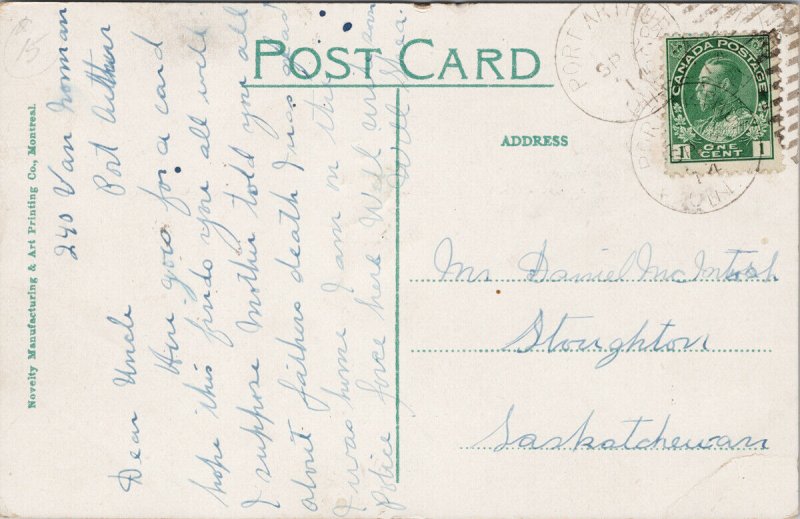 POST CARD
ADDRESS
Novelty Manufacturing & Art Printing Co., Montreal.
CANADA POSTAGE
1 ONE CENT 1
PORT ARTHUR
SP
14
ONT
15
240 Van Norman
Port Arthur
Dear Uncle
Here goes for a card
hope this finds you all well
I suppose Mother told you all
about fathers death I was glad
I was home I am on the
Police force here Well write am
Will
Mr Daniel McIntosh
Stoughton
Saskatchewan